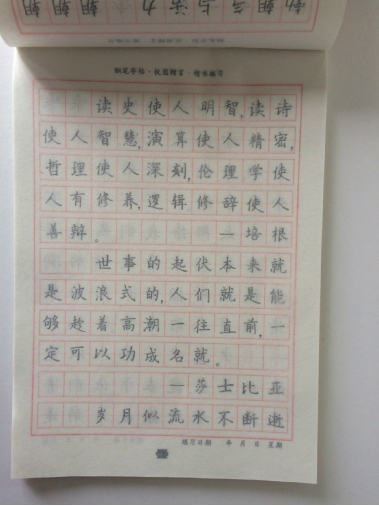 钢笔字帖·校园赠言·楷书练习
读史使人明智,读诗
使人智慧,演算使人精密,
哲理使人深刻,伦理学使
人有修养,逻辑修辞使人
善辩。 —培根
世事的起伏本来就
是波浪式的,人们就是能
够趁着高潮一往直前,一
定可以功成名就。
—莎士比亚
岁月似流水不断逝
练习日期 年 月 日 星期